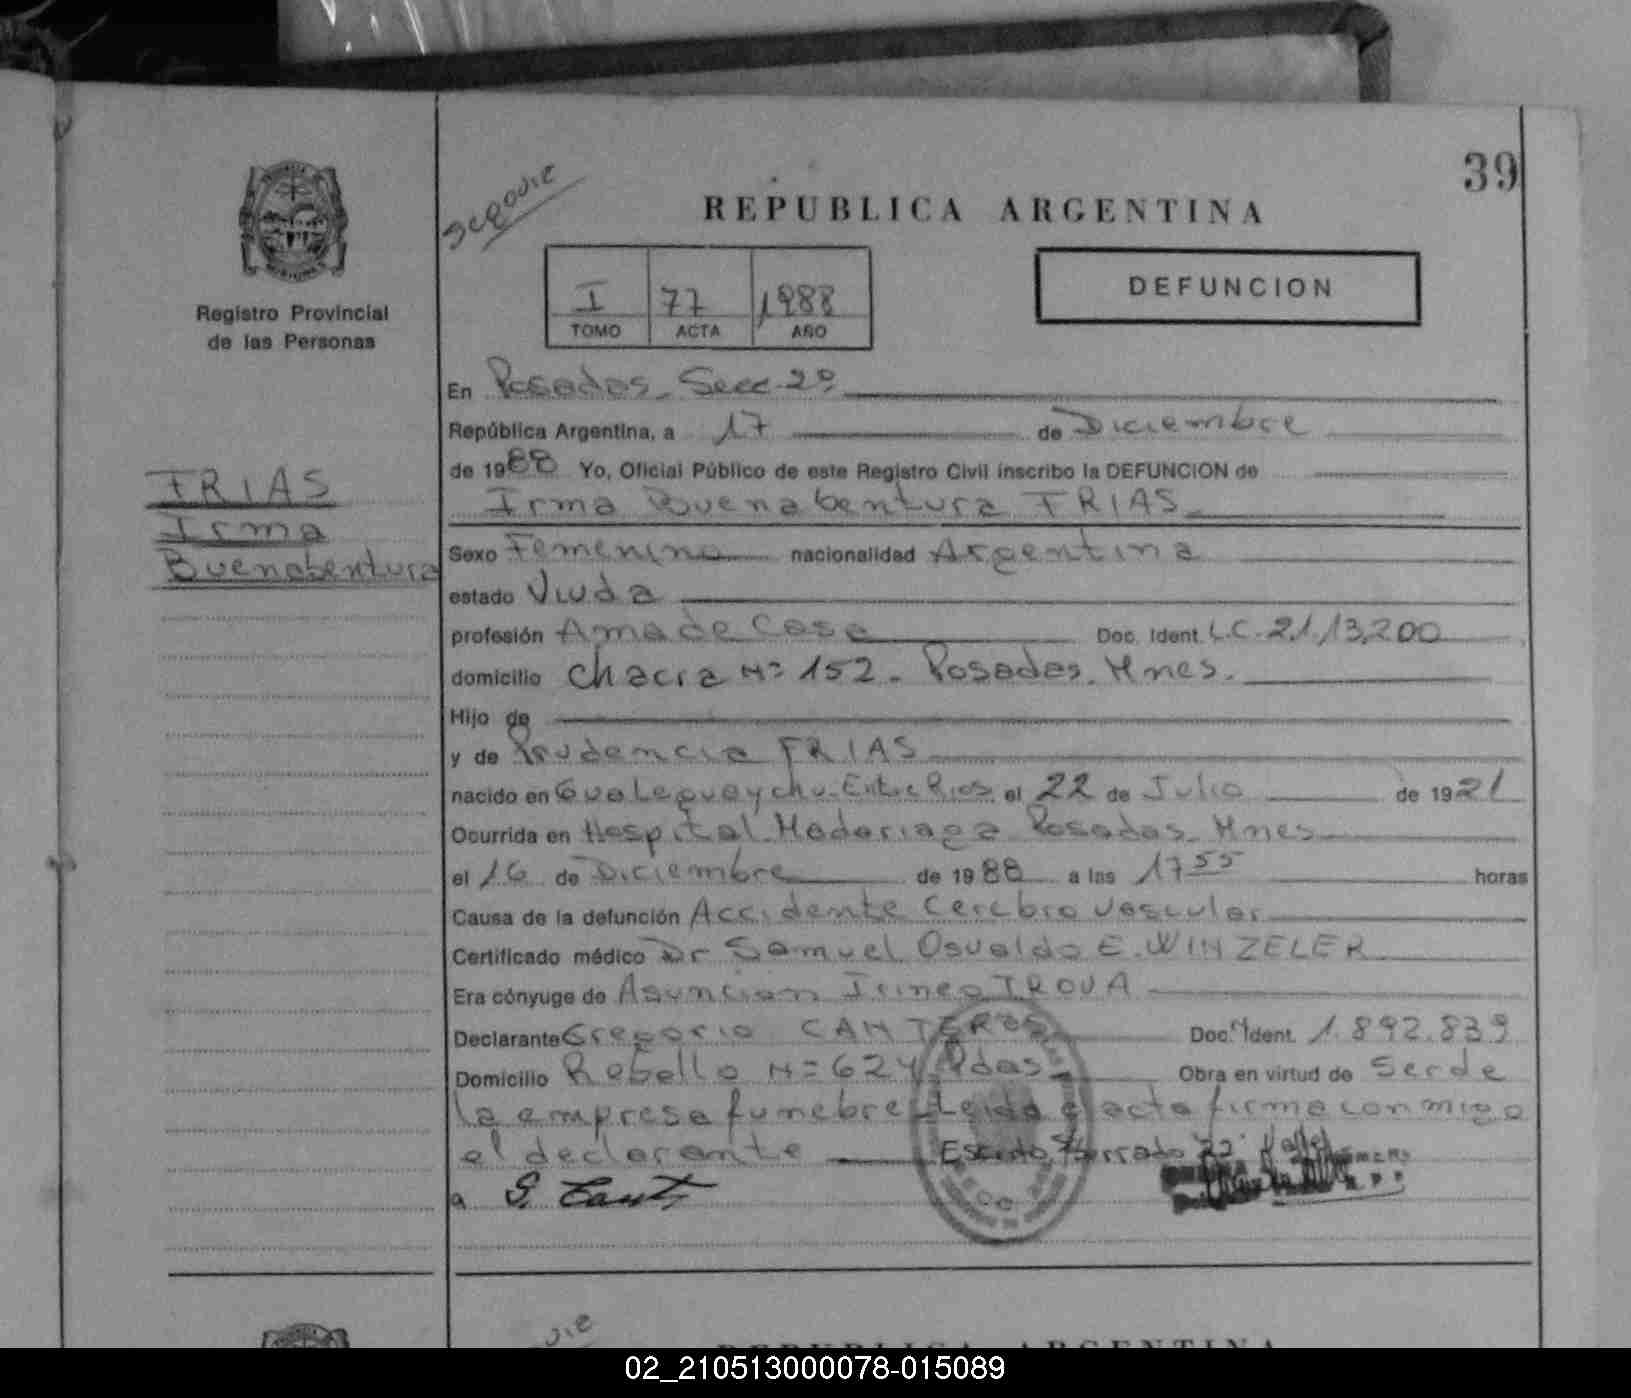 39
Segovie
REPUBLICA ARGENTINA
I 77 1988
TOMO ACTA AÑO
DEFUNCION
Registro Provincial
de las Personas
FRIAS
Irma
Buenabentura
En Posadas. Secc. 2º
República Argentina, a 17 de Diciembre
de 1988 Yo, Oficial Público de este Registro Civil inscribo la DEFUNCION de
Irma Buenabentura FRIAS
Sexo Femenino nacionalidad Argentina
estado Viuda
profesión Ama de Casa Doc. Ident. L.C. 2.1.13.200
domicilio Chacra Nº 152. Posadas. Mnes.
Hijo de
y de Prudencia FRIAS
nacido en Gualeguaychu-Entre Rios el 22 de Julio de 1921
Ocurrida en Hospital Madariaga Posadas Mnes
el 16 de Diciembre de 1988 a las 17 55 horas
Causa de la defunción Accidente Cerebro vascular
Certificado médico Dr Samuel Osvaldo E. WINZELER
Era cónyuge de Asuncion Irineo TROVA
Declarante Gregorio CANTEROS Doc. M Ident. 1.892.839
Domicilio Rebello Nº 624 Pdas Obra en virtud de Ser de
la empresa funebre Leida el acta firma conmigo
el declarante Escrito Borrado "22" Vale
a G. Cant
REPUBLICA ARGENTINA
02_210513000078-015089